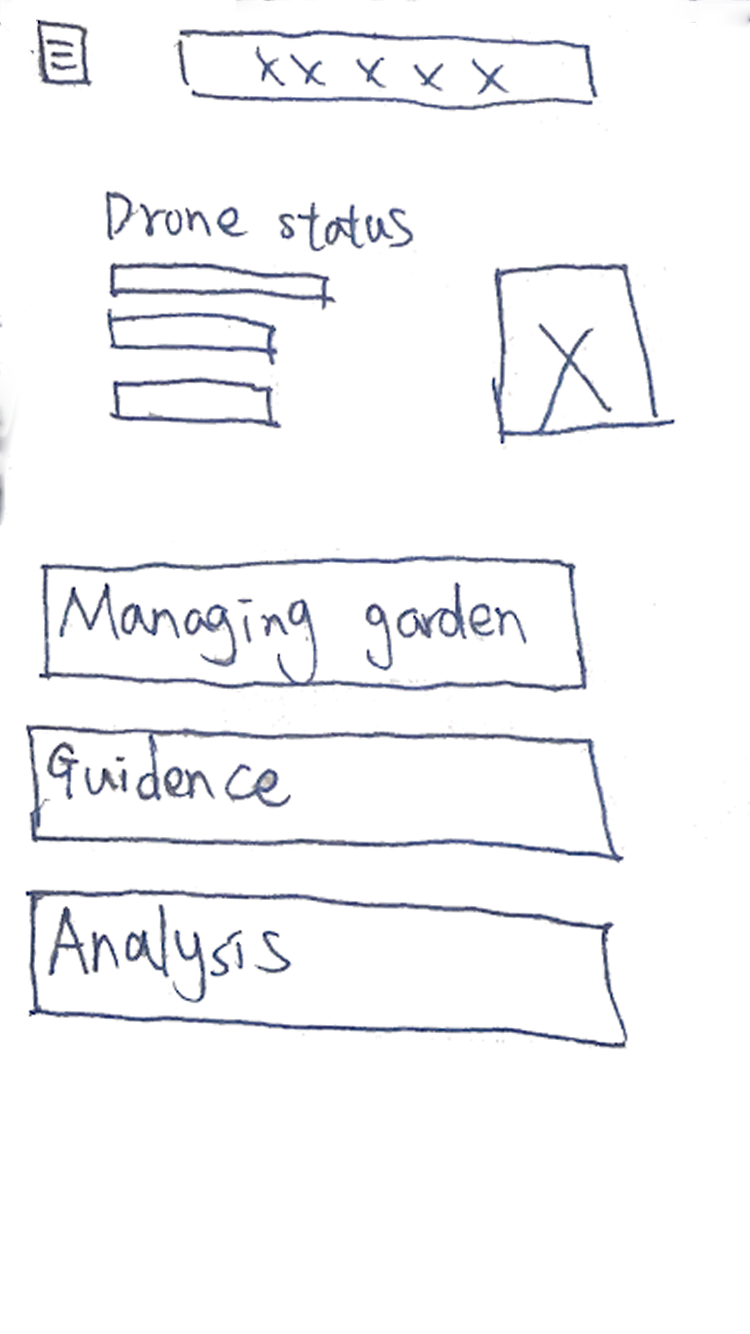 XX X X X
Drone status
Managing garden
Guidence
Analysis